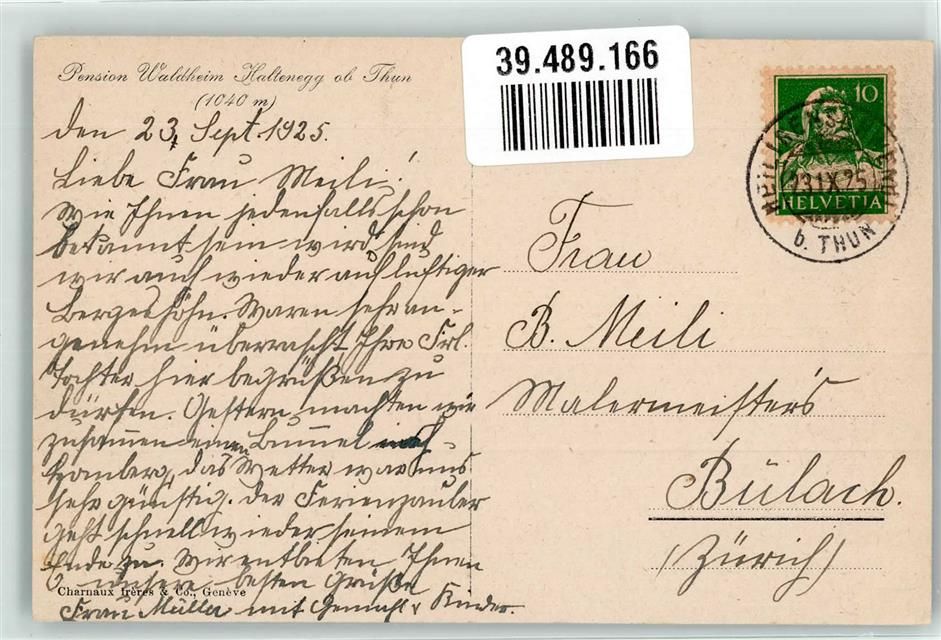 39.489.166
Pension Waldheim Haltenegg ob Thun
(1040 m)
den 23. Sept. 1925.
Liebe Frau Meili!
Wie Ihnen jedenfalls schon
bekannt sein wird sind
wir auch wieder auf luftiger
Bergeshöhn. Waren sehr an-
genehm überrascht Ihre Frl.
Tochter hier begrüßen zu
dürfen. Gestern machten wir
zusammen einen Bummel nach
Homberg, das Wetter war uns
sehr günstig. Der Ferienzauber
geht schnell wieder seinem
Ende zu. Wir entbieten Ihnen
unsere besten Grüße
Charnaux frères & Co., Genève
Frau Müller mit Gemahl & Kinder.
10
23.IX.25
HELVETIA
b. THUN
Frau
B. Meili
Malermeister's
Bülach.
(Zürich)